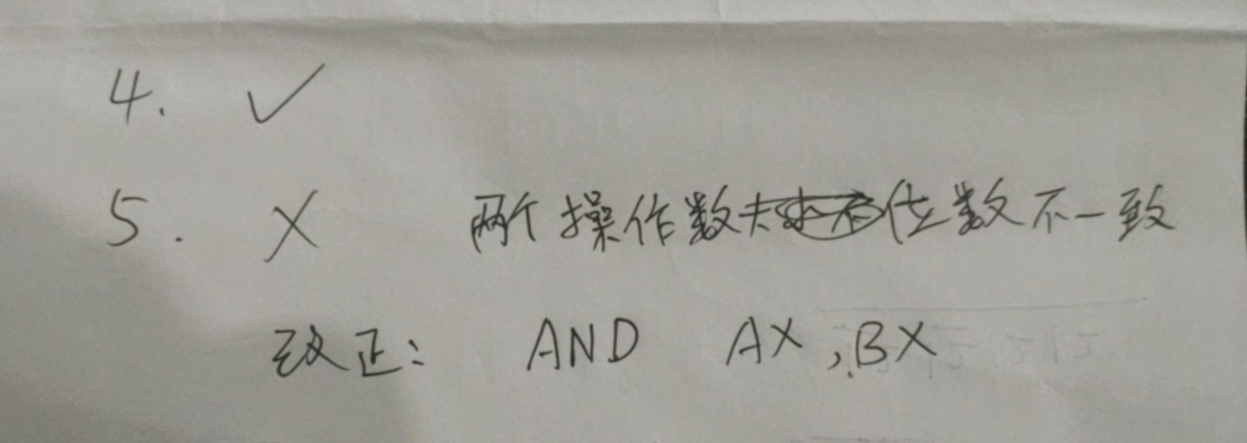 4. ✓
5. ✗ 两个操作数位数不一致
改正: AND AX,BX